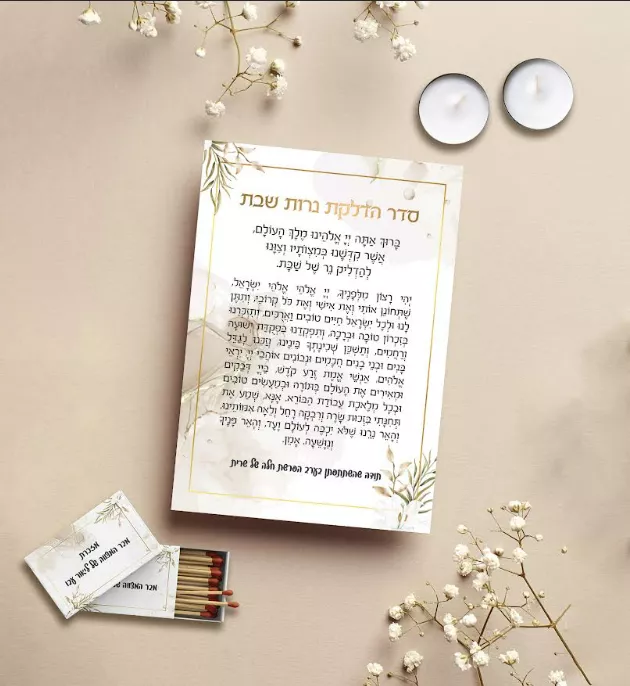 סדר הדלקת נרות שבת
בָּרוּךְ אַתָּה יְיָ אֱלֹהֵינוּ מֶלֶךְ הָעוֹלָם,
אֲשֶׁר קִדְּשָׁנוּ בְּמִצְוֹתָיו וְצִוָּנוּ
לְהַדְלִיק נֵר שֶׁל שַׁבָּת.
יְהִי רָצוֹן מִלְּפָנֶיךָ, יְיָ אֱלֹהַי אֱלֹהֵי יִשְׂרָאֵל,
שֶׁתְּחוֹנֵן אוֹתִי וְאֶת אִישִׁי וְאֶת כֹּל קְרוֹבַי, וְתִתֵּן
לָנוּ וּלְכָל יִשְׂרָאֵל חַיִּים טוֹבִים וַאֲרֻכִּים, וְתִזְכְּרֵנוּ
בְּזִכְרוֹן טוֹבָה וּבְרָכָה, וְתִפְקְדֵנוּ בִּפְקֻדַּת יְשׁוּעָה
וְרַחֲמִים, וְתַשְׁכֵּן שְׁכִינָתְךָ בֵּינֵינוּ, וְזַכֵּנוּ לְגַדֵּל
בָּנִים וּבְנֵי בָנִים חֲכָמִים וּנְבוֹנִים אוֹהֲבֵי יְיָ יִרְאֵי
אֱלֹהִים, אַנְשֵׁי אֱמֶת זֶרַע קֹדֶשׁ, בַּייָ דְּבֵקִים
וּמְאִירִים אֶת הָעוֹלָם בְּתוֹרָה וּבְמַעֲשִׂים טוֹבִים
וּבְכָל מְלֶאכֶת עֲבוֹדַת הַבּוֹרֵא. אָנָּא, שְׁמַע אֶת
תְּחִנָּתִי בִּזְכוּת שָׂרָה וְרִבְקָה רָחֵל וְלֵאָה אִמּוֹתֵינוּ,
וְהָאֵר נֵרֵנוּ שֶׁלֹּא יִכְבֶּה לְעוֹלָם וָעֶד, וְהָאֵר פָּנֶיךָ
וְנִוָּשֵׁעָה, אָמֵן.
תודה שהשתתפתן בערב הפרשת חלה של שרית
מזכרת
מבר המצווה של ליאור
מבר המצווה